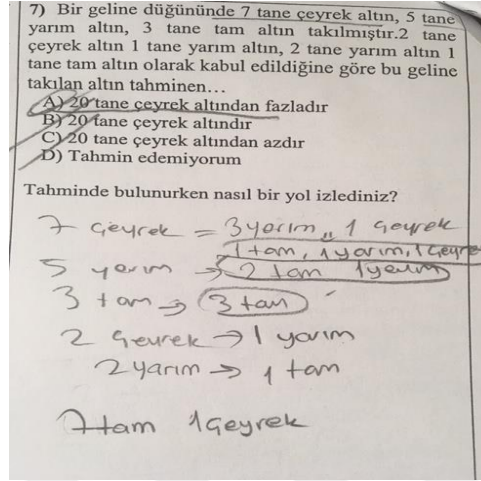 7) Bir geline düğününde 7 tane çeyrek altın, 5 tane
yarım altın, 3 tane tam altın takılmıştır.2 tane
çeyrek altın 1 tane yarım altın, 2 tane yarım altın 1
tane tam altın olarak kabul edildiğine göre bu geline
takılan altın tahminen...
A) 20 tane çeyrek altından fazladır
B) 20 tane çeyrek altındır
C) 20 tane çeyrek altından azdır
D) Tahmin edemiyorum
Tahminde bulunurken nasıl bir yol izlediniz?
7 çeyrek = 3 yarım, 1 çeyrek
1 tam, 1 yarım, 1 çeyre
5 yarım → 2 tam 1 yarım
3 tam → 3 tam
2 çeyrek → 1 yarım
2 yarım → 1 tam
7 tam 1 çeyrek